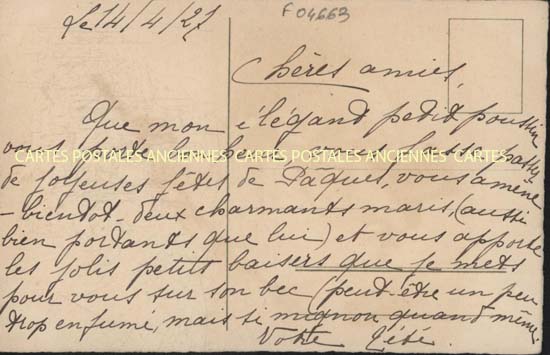 Le 14/4/27
F 04663
Chères amies,
Que mon élégand petit poussin
vous porte bonheur, vous fasse passer
CARTES POSTALES ANCIENNES CARTES POSTALES ANCIENNES CARTES
de joyeuses fêtes de Pâques, vous amène
- bientôt - deux charmants maris, (aussi
bien portants que lui) et vous apporte
les jolis petits baisers que je mets
pour vous sur son bec (peut-être un peu
trop enfumé, mais si mignon quand même.
Votre Zézé.